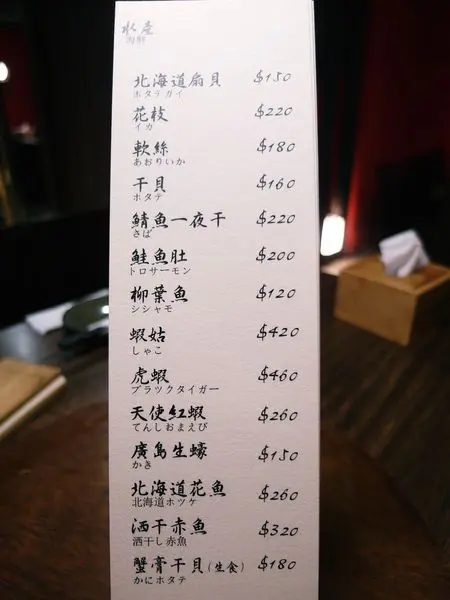 水產
海鮮
北海道扇貝 $150
ホタテガイ
花枝 $220
イカ
軟絲 $180
あおりいか
干貝 $160
ホタテ
鯖魚一夜干 $220
さば
鮭魚肚 $200
トロサーモン
柳葉魚 $120
シシャモ
蝦姑 $420
しゃこ
虎蝦 $460
ブラックタイガー
天使紅蝦 $260
てんしおまえび
廣島生蠔 $150
かき
北海道花魚 $260
北海道ホッケ
洒干赤魚 $320
酒干し赤魚
蟹膏干貝(生食) $180
かにホタテ